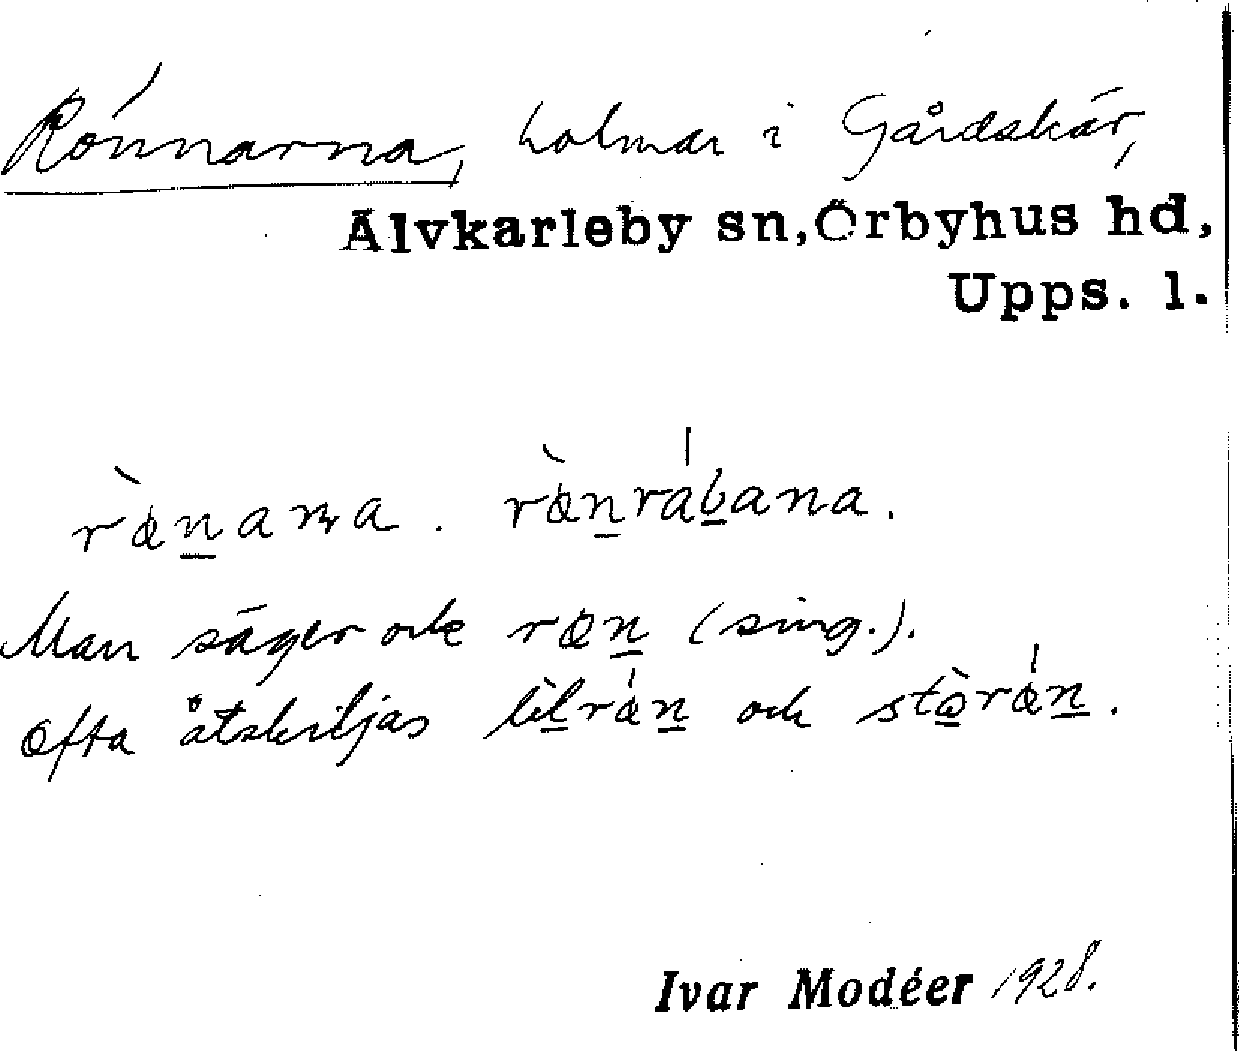 Rönnarna, holmar i Gårdskär,
Älvkarleby sn, Örbyhus hd,
Upps. l.
rø̀n̲ana. rø̀n̲ráb̲ana.
Man säger ock røn̲ (sing.).
Ofta åtskiljas lìl̲rǿn̲ och stò̲rǿn̲.
Ivar Modéer 1928.